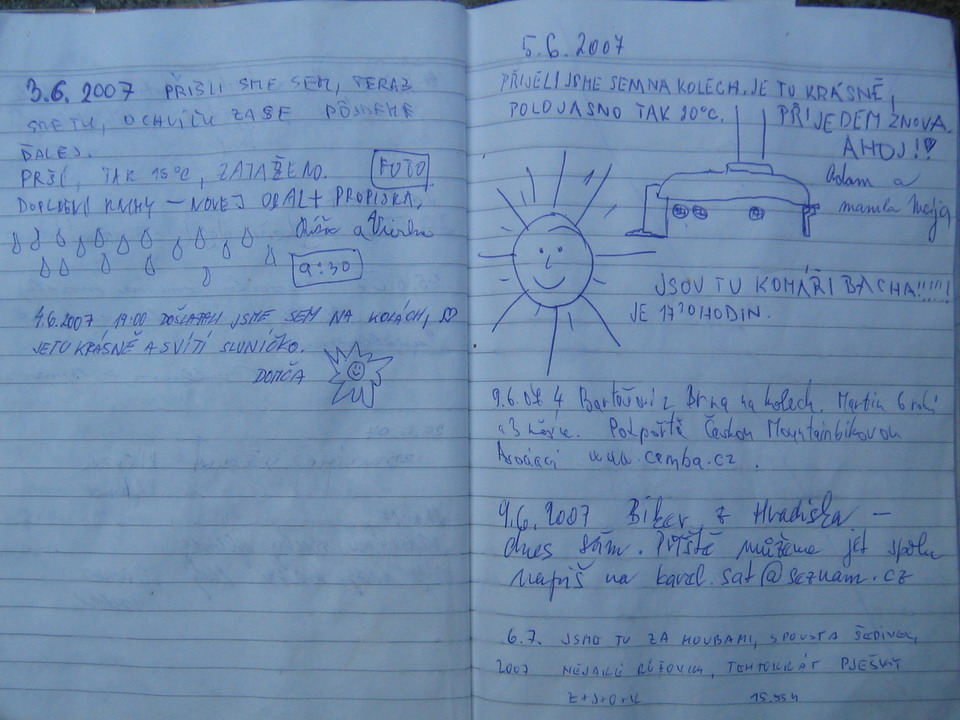 3.6.2007 PŘIŠLI SME SEM, TERAZ
SME TU, O CHVÍĽU ZASE PÔJDEME
ĎALEJ.
PRŠÍ, TAK 15°C, ZATAŽENO. FOTO
DOPLNĚNÍ KNIHY – NOVEJ OBAL + PROPISKA,
a
9:30
4.6.2007 19:00 DOŠLAPALI JSME SEM NA KOLÁCH,
JE TU KRÁSNĚ A SVÍTÍ SLUNÍČKO.
DOMČA
5.6.2007
PŘIJELI JSME SEM NA KOLECH. JE TU KRÁSNĚ,
POLOJASNO TAK 20°C. PŘIJEDEM ZNOVA.
AHOJ!!
Adam a
mamka
JSOU TU KOMÁŘI BACHA!!!!!
JE 17³⁰ HODIN.
9.6.07 4 Bartošovi z Brna na kolech. Martin 6 roků
a 3 měsíce. Podpořte Českou Mountainbikovou
Asociaci www.cemba.cz.
9.6.2007 Biker z Hradiska –
dnes sám. Příště můžeme jet spolu
napiš na karel.sat@seznam.cz
6.7. JSME TU ZA HOUBAMI, SPOUSTA ŠEDIVEK,
2007 NĚJAKÉ RŮŽOVKY, TENTOKRÁT PJEŠKY
Z+J+O+K 15.55h